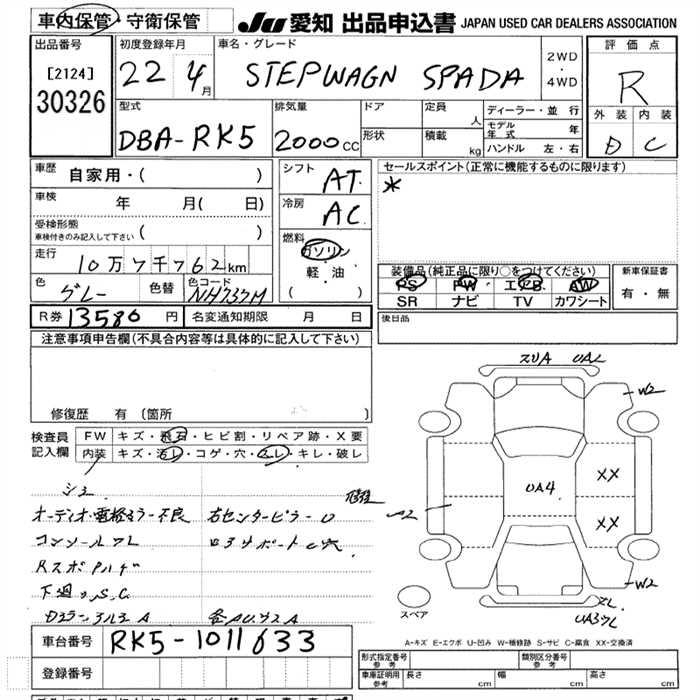 車内保管・守衛保管
JU 愛知 出品申込書 JAPAN USED CAR DEALERS ASSOCIATION
出品番号
[2124]
30326
初度登録年月
22 4月
車名・グレード
STEPWAGN SPADA
2WD
・
4WD
評価点
R
外装 内装
D C
型式
DBA-RK5
排気量
2000cc
ドア
形状
定員 人
積載 kg
ディーラー・並行
モデル年式 年
ハンドル 左・右
車歴 自家用・( )
車検 年 月( 日)
受検形態
車検付きのみ記入して下さい ( )
走行 10万7千762km
色 グレー 色替 色コード NH737M
シフト AT
冷房 AC
燃料
ガソリン
軽・油
( )
セールスポイント(正常に機能するものに限ります)
*
装備品(純正品に限り○をつけてください)
PS PW エアB AW
SR ナビ TV カワシート
新車保証書
有・無
R券 13580円 名変通知期限 月 日
後日品
注意事項申告欄(不具合内容等は具体的に記入して下さい)
修復歴 有 (箇所 )
検査員記入欄
FW キズ・飛石・ヒビ割・リペア跡・X要
内装 キズ・汚レ・コゲ・穴・スレ・キレ・破レ
シミ
オーディオ・電格ミラー不良 右センターピラーU
コンソールワレ
下廻りS,C
スペア
UA4
XX
XX
W2
W2
A-キズ E-エクボ U-凹み W-補修跡 S-サビ C-腐食 XX-交換済
車台番号 RK5-1011633
登録番号
形式指定番号 参考
類別区分番号 参考
車庫証明用 参考 長さ cm 幅 cm 高さ cm